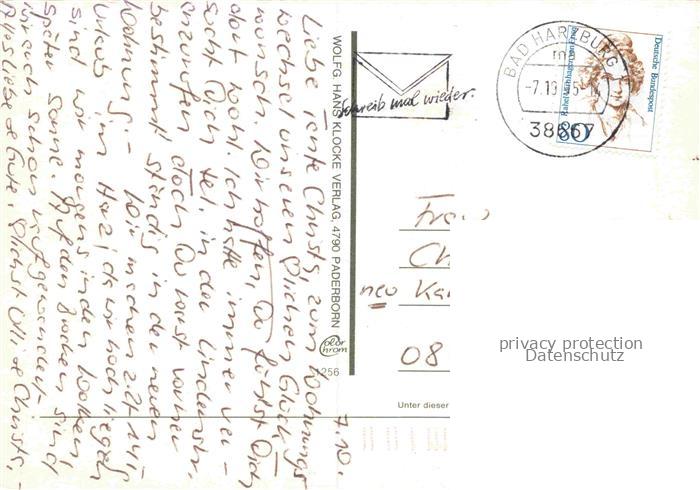 7.10.
Liebe Tante Christa, zum Wohnungs-
wechsel unseren herzlichen Glück-
wunsch. Wir hoffen, Du fühlst Dich
dort wohl. Ich hatte immer ver-
sucht Dich tel. in der Lindenstr.
anzurufen doch Du warst vorher
bestimmt ständig in der neuen
Wohnung - Wir machen z.Zt. wi.
Urlaub im Harz, da wir hoch liegen
sind wir morgens in den Wolken
später Sonne. Auf den Brocken sind
wir auch schon raufgewandert
Alles Liebe + Gute, Christa.
WOLFG. HANS KLOCKE VERLAG, 4790 PADERBORN
color chrom
1256
Schreib mal wieder.
BAD HARZBURG 1
mc
-7.10.
38667
Deutsche Bundespost
Rahel Varnhagen von Ense
80
Frau
Ch
neu Ka
08
Unter dieser
privacy protection
Datenschutz